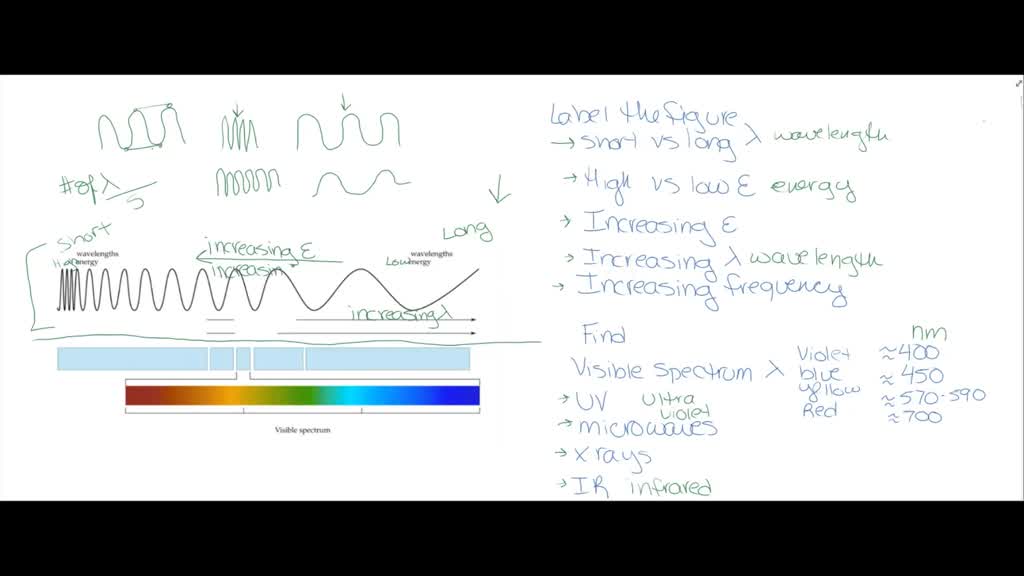 # of λ/s
Short
Long
wavelengths
wavelengths
High
energy
Low
energy
increasing ε
increasin
increasing λ
Visible spectrum
Label the figure
→ short vs long λ wavelength
→ High vs low ε energy
→ Increasing ε
→ Increasing λ wavelength
→ Increasing frequency
Find
nm
Visible Spectrum λ
Violet ≈400
blue ≈450
yllow ≈570-590
Red ≈700
→ UV Ultra violet
→ microwaves
→ x rays
→ IR infrared